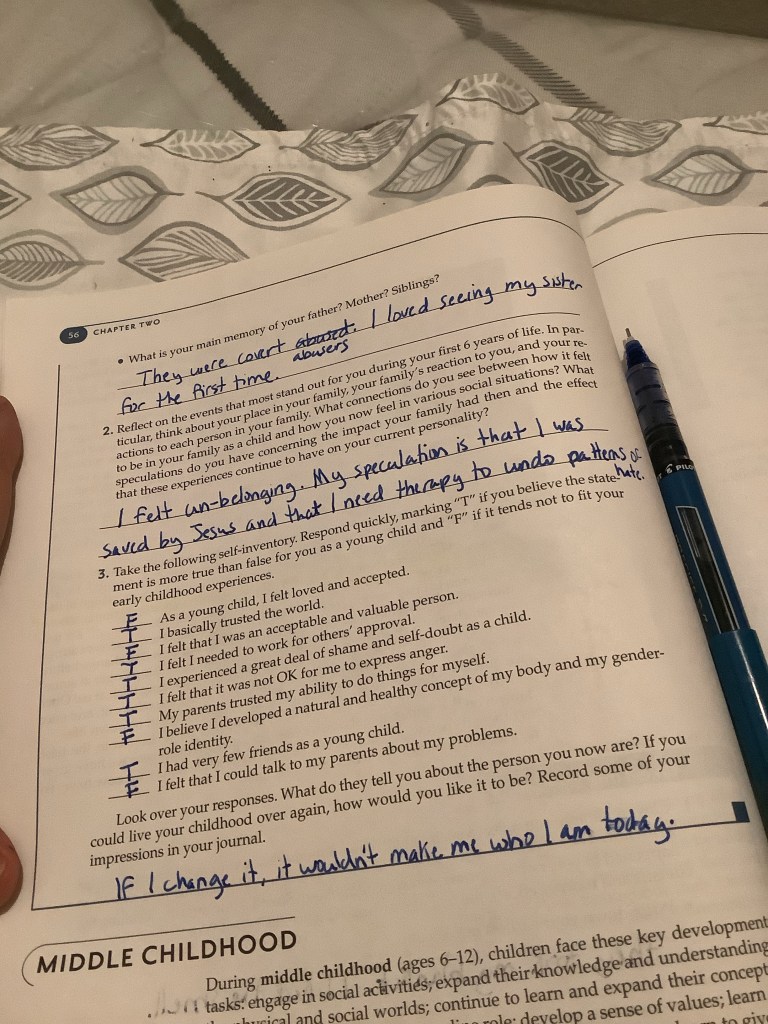 56 CHAPTER TWO
• What is your main memory of your father? Mother? Siblings?
They were covert abused. I loved seeing my sister
abusers
for the first time.
2. Reflect on the events that most stand out for you during your first 6 years of life. In par-
ticular, think about your place in your family, your family's reaction to you, and your re-
actions to each person in your family. What connections do you see between how it felt
to be in your family as a child and how you now feel in various social situations? What
speculations do you have concerning the impact your family had then and the effect
that these experiences continue to have on your current personality?
I felt un-belonging. My speculation is that I was
saved by Jesus and that I need therapy to undo patterns of
hate.
3. Take the following self-inventory. Respond quickly, marking "T" if you believe the state-
ment is more true than false for you as a young child and "F" if it tends not to fit your
early childhood experiences.
F As a young child, I felt loved and accepted.
T I basically trusted the world.
F I felt that I was an acceptable and valuable person.
T I felt I needed to work for others' approval.
T I experienced a great deal of shame and self-doubt as a child.
T I felt that it was not OK for me to express anger.
T My parents trusted my ability to do things for myself.
F I believe I developed a natural and healthy concept of my body and my gender-
role identity.
T I had very few friends as a young child.
F I felt that I could talk to my parents about my problems.
Look over your responses. What do they tell you about the person you now are? If you
could live your childhood over again, how would you like it to be? Record some of your
impressions in your journal.
IF I change it, it wouldn't make me who I am today.
MIDDLE CHILDHOOD
During middle childhood (ages 6–12), children face these key development
tasks: engage in social activities; expand their knowledge and understanding
physical and social worlds; continue to learn and expand their concept
role; develop a sense of values; learn
to giv
PILO